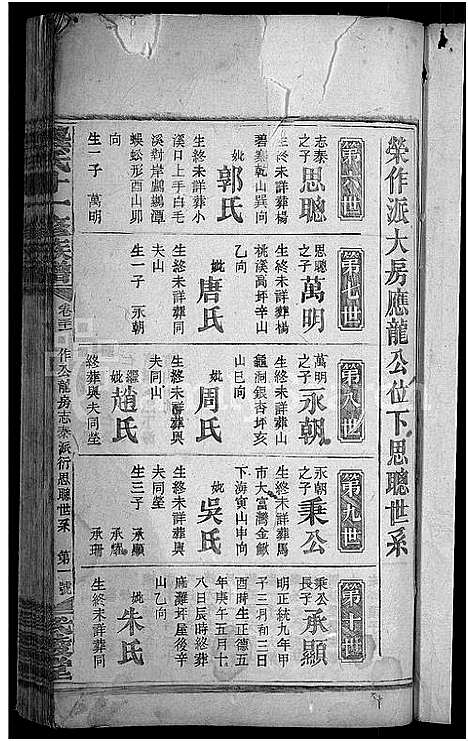 榮作派大房應龍公位下思聰世系
第六世
志泰之子
思聰
生終未詳葬楊
碧寨乾山巽向
妣
郭氏
生終未詳葬小
溪口上手白毛
溪對岸鸕鷀潭
蜈蚣形酉山卯
向
生一子 萬明
第七世
思聰之子
萬明
生終未詳葬楊
桃溪萬坪辛山
乙向
妣
唐氏
生終未詳葬同
夫山
生一子 永朝
第八世
萬明之子
永朝
生終未詳葬
洞銀杏坪亥
山巳向
妣
周氏
生終未詳葬與
夫同山
繼妣
趙氏
終葬與夫同塋
第九世
永朝之子
秉公
生終未詳葬馬
市大富灣金鍬
下海寅山申向
妣
吳氏
生終未詳葬與
夫同塋
生三子 承顯
承耀
承珊
第十世
秉公長子
承顯
明正統九年甲
子三月初三日
酉時生正德五
年庚午五月十
八日辰時終葬
灘坪屋後辛
山乙向
妣
朱氏
生終未詳葬同
氏十一修族譜
卷三
作公龍房志泰派衍思聰世系
第一號